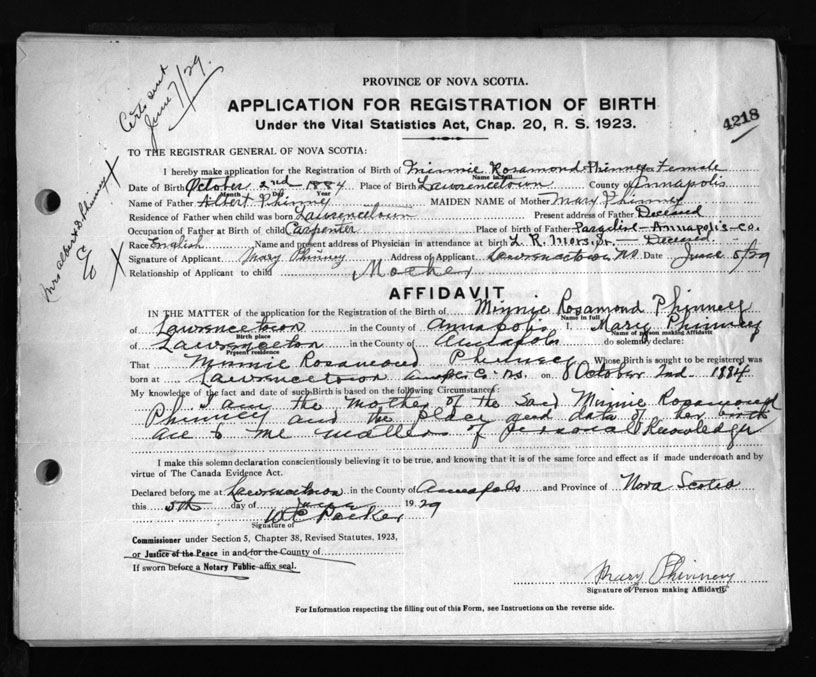 Certs sent
June 7/29.
PROVINCE OF NOVA SCOTIA.
APPLICATION FOR REGISTRATION OF BIRTH
4218
Under the Vital Statistics Act, Chap. 20, R. S. 1923.
TO THE REGISTRAR GENERAL OF NOVA SCOTIA:
I hereby make application for the Registration of Birth of Minnie Rosamond Phinney Sex Female
Name in full
Date of Birth October 2nd 1884 Place of Birth Lawrencetown County of Annapolis
Month Day Year
Name of Father Albert Phinney MAIDEN NAME of Mother Mary Phinney
Residence of Father when child was born Lawrencetown Present address of Father Deceased
Occupation of Father at Birth of child Carpenter Place of birth of Father Paradise - Annapolis - Co.
Race English Name and present address of Physician in attendance at birth L. R. Mors, Sr. — Deceased
Signature of Applicant Mary Phinney Address of Applicant Lawrencetown NS Date June 5/29
Relationship of Applicant to child Mother
Mrs Albert B Phinney
X
X
AFFIDAVIT
IN THE MATTER of the application for the Registration of the Birth of Minnie Rosamond Phinney
Name in full
of Lawrencetown in the County of Annapolis I, Mary Phinney
Birth place Name of person making Affidavit
of Lawrencetown in the County of Annapolis do solemnly declare:
Present residence
That Minnie Rosamond Phinney Whose Birth is sought to be registered was
born at Lawrencetown Co. NS. on October 2nd 1884
My knowledge of the fact and date of such Birth is based on the following Circumstances:
I am the mother of the said Minnie Rosamond
Phinney and the place and date of her birth
are to me matters of personal knowledge
I make this solemn declaration conscientiously believing it to be true, and knowing that it is of the same force and effect as if made under oath and by
virtue of The Canada Evidence Act.
Declared before me at Lawrencetown in the County of Annapolis and Province of Nova Scotia
this 5th day of June 1929
W C Parker
Signature of
Commissioner under Section 5, Chapter 38, Revised Statutes, 1923,
or Justice of the Peace in and for the County of
If sworn before a Notary Public affix seal.
Mary Phinney
Signature of Person making Affidavit
For Information respecting the filling out of this Form, see Instructions on the reverse side.